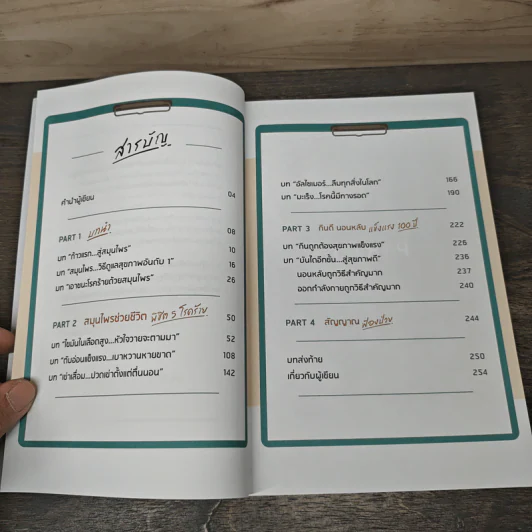 สารบัญ
คำนำผู้เขียน 04
PART 1 บทนำ 08
บท “ก้าวแรก...สู่สมุนไพร” 10
บท “สมุนไพร...วิธีดูแลสุขภาพอันดับ 1” 16
บท “อาชนะโรคร้ายด้วยสมุนไพร” 26
PART 2 สมุนไพรช่วยชีวิต พิชิต 5 โรคร้าย 50
บท “ไขมันในเลือดสูง...หัวใจวายจะตามมา” 52
บท “ตับอ่อนแข็งแรง...เบาหวานหายขาด” 108
บท “เข่าเสื่อม...ปวดเข่าตั้งแต่ตื่นนอน” 142
บท “อัลไซเมอร์...ลืมทุกสิ่งในโลก” 166
บท “มะเร็ง...โรคนี้มีทางรอด” 190
PART 3 กินดี นอนหลับ แข็งแรง 100 ปี 222
บท “กินถูกต้องสุขภาพแข็งแรง” 226
บท “บันไดอีกขั้น...สู่สุขภาพดี” 236
นอนหลับถูกวิธีสำคัญมาก 237
ออกกำลังกายถูกวิธีสำคัญมาก 240
PART 4 สัญญาณ 244
บทส่งท้าย 250
เกี่ยวกับผู้เขียน 254